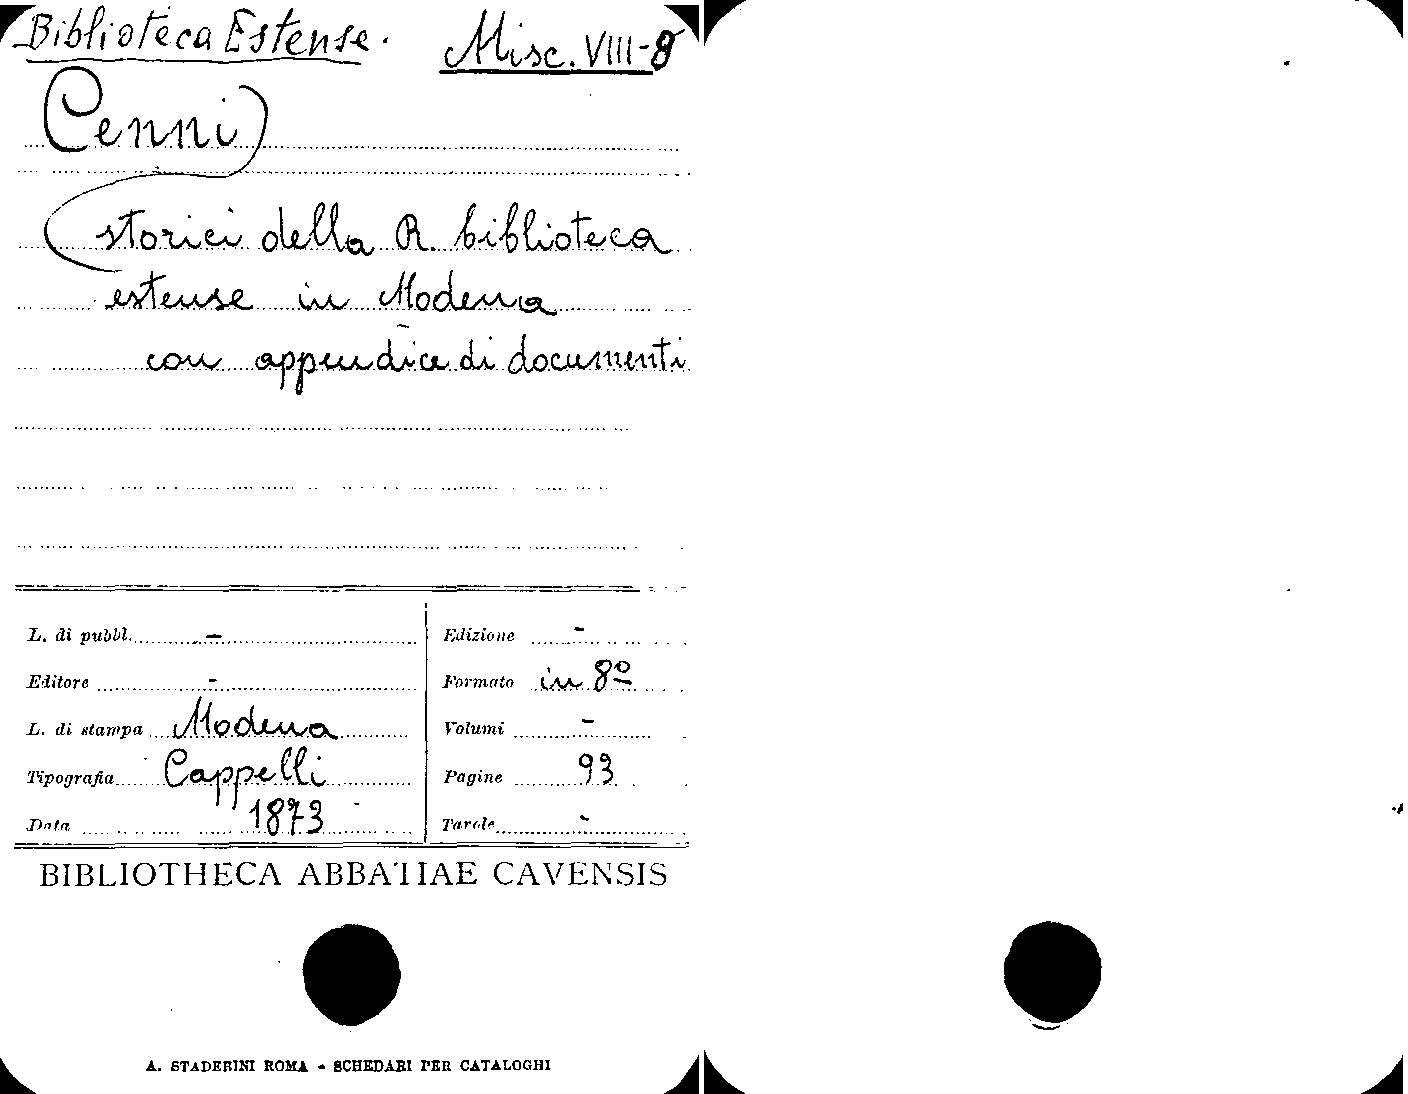 Biblioteca Estense. Misc. VIII-8
Cenni
storici della R. biblioteca
estense in Modena
con appendice di documenti
L. di pubbl. - Edizione -
Editore - Formato in 8º
L. di stampa Modena Volumi -
Tipografia Cappelli Pagine 93
Data 1873 Tavole -
BIBLIOTHECA ABBATIAE CAVENSIS
A. STADERINI ROMA - SCHEDARI PER CATALOGHI